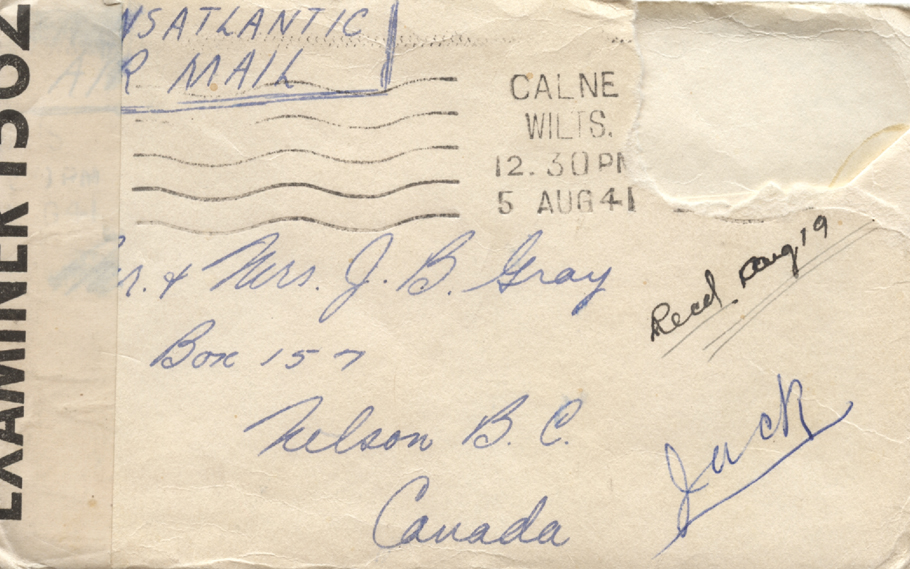 NSATLANTIC
AIR MAIL
CALNE
WILTS.
12.30 PM
5 AUG 41
Mr. & Mrs. J. B. Gray
Box 157
Nelson B. C.
Canada
Recd Aug 19
Jack
EXAMINER 1562